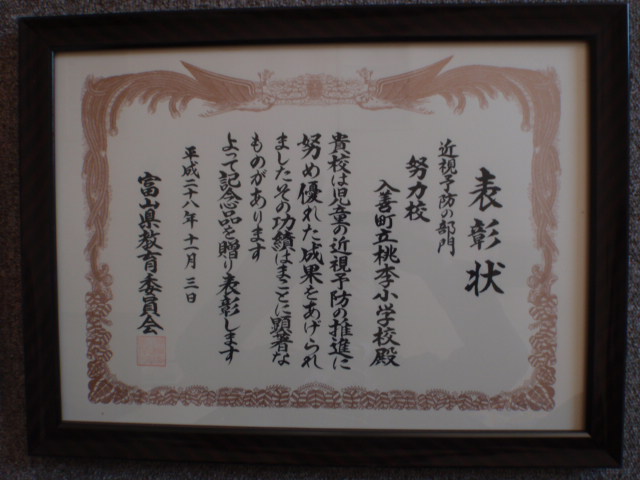 表彰状
近視予防の部門
努力校
入善町立桃李小学校殿
貴校は児童の近視予防の推進に
努め優れた成果をあげられ
ましたその功績はまことに顕著な
ものがあります
よって記念品を贈り表彰します
平成二十八年十一月三日
富山県教育委員会